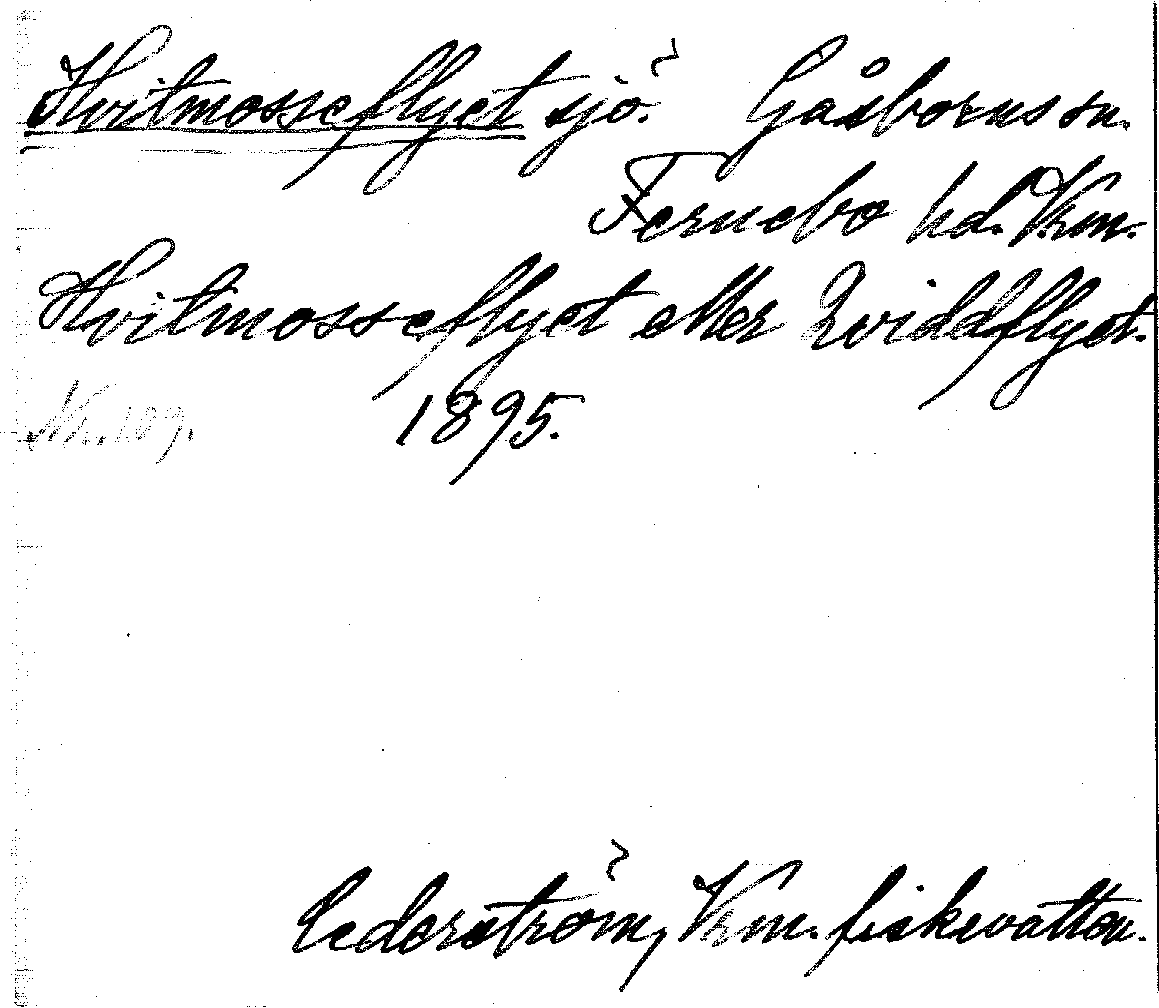 Hvitmosseflyet sjö. Gåsborns sn.
Fernebo hd. Vrm.
Hvitmosseflyet eller Qviddflyet.
Nr. 109. 1895.
Cederström, Vrm. fiskevatten.